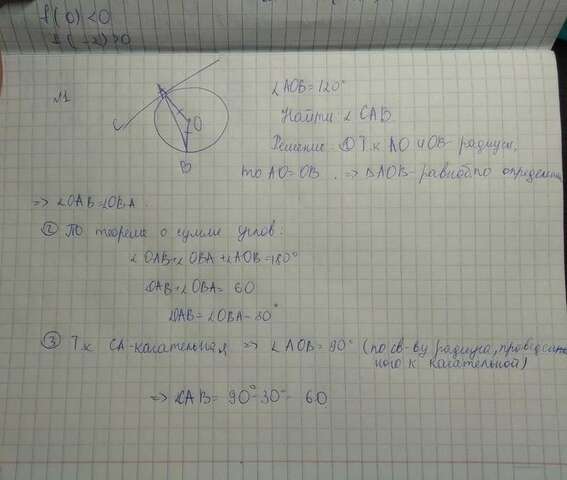 f(0)<0
f(-2)>0
№1
A
C
O
B
∠AOB=120°
Найти: ∠CAB
Решение: ① Т.к AO и OB- радиусы,
то AO=OB. => ΔAOB- равноб по определен
=> ∠OAB=∠OBA.
② По теореме о сумме углов:
∠OAB+∠OBA+∠AOB=180°
∠OAB+∠OBA= 60
∠OAB=∠OBA-30°
③ Т.к CA-касательная => ∠AOB=90° (по св-ву радиуса, проведенного к касательной)
=> ∠CAB= 90°-30°- 60